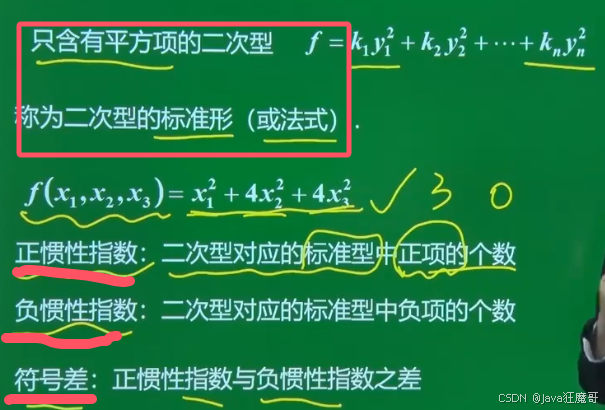 只含有平方项的二次型 f = k₁y₁² + k₂y₂² + ⋯ + kₙyₙ²
称为二次型的标准形（或法式）.
f(x₁, x₂, x₃) = x₁² + 4x₂² + 4x₃² ✓ 3 0
正惯性指数：二次型对应的标准型中正项的个数
负惯性指数：二次型对应的标准型中负项的个数
符号差：正惯性指数与负惯性指数之差
CSDN @Java狂魔哥